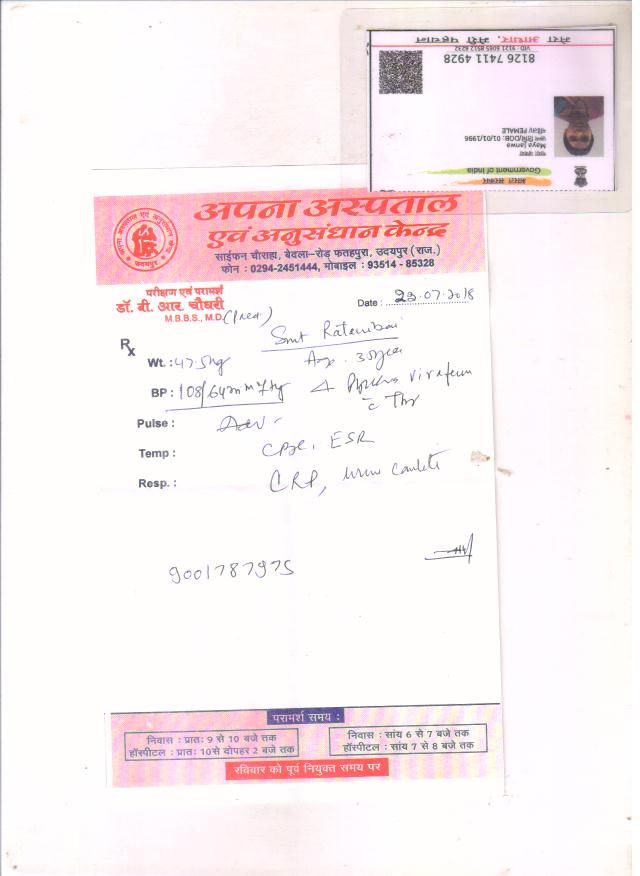 मेरा आधार, मेरी पहचान
VID : 9121 6065 8512 6232
8126 7411 4928
जन्म तिथि/DOB: 01/01/1996
महिला/ FEMALE
Maya Janwa
Government of India
भारत सरकार
अपना अस्पताल
एवं अनुसंधान केन्द्र
साईफन चौराहा, बेदला-रोड़ फतहपुरा, उदयपुर (राज.)
फोन : 0294-2451444, मोबाइल : 93514 - 85328
परीक्षण एवं परामर्श
डॉ. बी. आर चौधरी
M.B.B.S., M.D.
Date : 23.07.2018
Rx
Smt Ratanibai
Wt. : 47.5kg
Age.
BP : 108/64mmHg
Pulse : Adv
Temp : CBC, ESR
Resp. : CRP, urine
9001787975
परामर्श समय :
निवास : प्रातः 9 से 10 बजे तक
हॉस्पीटल : प्रातः 10 से दोपहर 2 बजे तक
निवास : सांय 6 से 7 बजे तक
हॉस्पीटल : सांय 7 से 8 बजे तक
रविवार को पूर्व नियुक्त समय पर